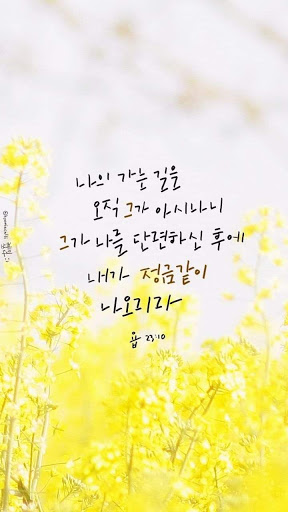 나의 가는 길을
오직 그가 아시나니
그가 나를 단련하신 후에
내가 정금같이
나오리라
욥 23:10